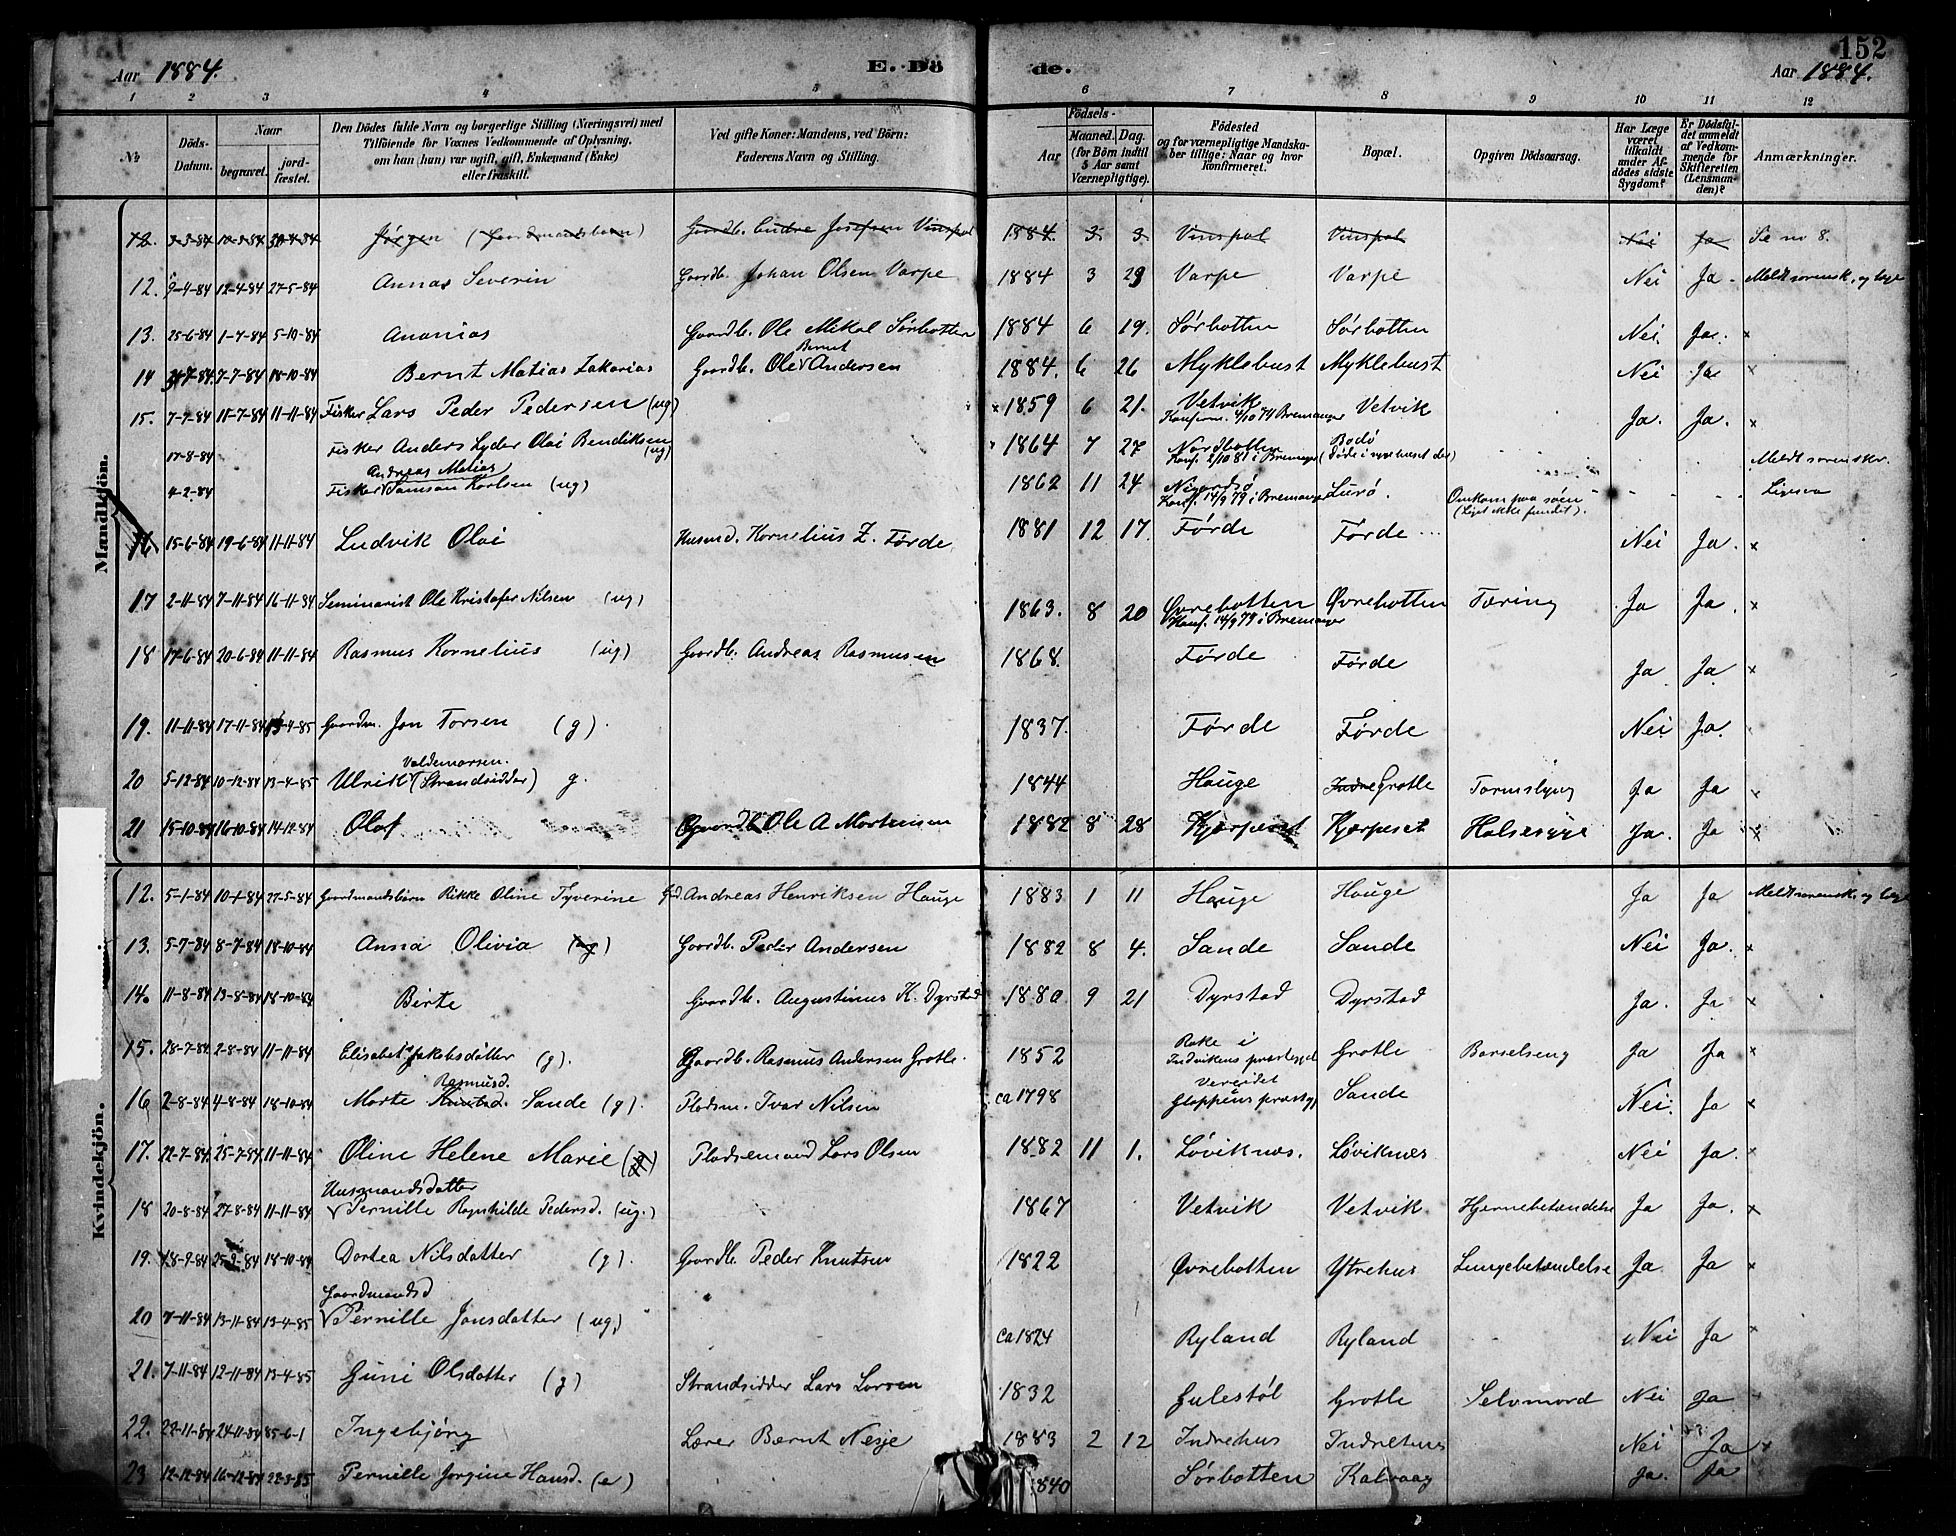 152
Aar 1884. E. Dö de. Aar 1884.
1 2 3 4 5 6 7 8 9 10 11 12
№ Döds-Datum. Naar begravet. jord-fæstet. Den Dödes fulde Navn og borgerlige Stilling (Næringsvei) med Tilföiende for Voxnes Vedkommende af Oplysning, om han (hun) var ugift, gift, Enkemand (Enke) eller fraskilt. Ved gifte Koner: Mandens, ved Börn: Faderens Navn og Stilling. Födsels- Aar Maaned. Dag. (for Börn indtil 5 Aar samt Værnepligtige). Födested og for værnepligtige Mandskaber tillige: Naar og hvor konfirmeret. Bopæl. Opgiven Dödsaarsag. Har Læge været tilkaldt under Afdödes sidste Sygdom? Er Dödsfaldet anmeldt af Vedkommende for Skifteretten (Lensmanden)? Anmærkninger.
Mandkjön.
12. 3-3-84 10-3-84 30-4-84 Jørgen (Gaardmandsbarn) Gaardb. Endre Josefsen Vinspol 1884. 3 3. Vinspol Vinspol Nei Ja Se no 8.
12. 9-4-84 12-4-84 27-5-84 Annas Severin Gaardb. Johan Olsen Varpe 1884 3 29 Varpe Varpe Nei Ja Meldt sorensk. og læge
13. 25-6-84 1-7-84 5-10-84 Ananias Gaardb. Ole Mikal Sørbotten 1884 6 19. Sørbotten Sørbotten Nei. Ja. x
Bernt
14 7-7-84 18-10-84 Bernt Matias Zakarias Gaardb. Ole Andersen 1884. 6 26 Myklebust Myklebust Nei Ja x
15. 7-7-84 11-7-84 11-11-84 Fisker Lars Peder Pedersen (ug) x 1859 6 21. Vetvik Konfirm. 4/10 74 Bremanger Vetvik Ja. Ja. x
17-8-84 Fisker Anders Lyder Olai Bendiksen (ug) 1864 7 27 Nordbotten Konf. 2/10 81 i Bremanger Bodø (Døde i sygehuset der) Meldt sorenskr.
Andreas Matias
4-2-84 Fisker Samson Karlsen (ug) 1862 11 24 Konf. 14/9 79 i Bremanger Lurø. Omkom paa søen (Liget ikke fundet). Ligesaa
16 15-6-84 19-6-84 11-11-84 Ludvik Olai Husmd. Kornelius Z. Førde 1881 12 17. Førde Førde Nei Ja. x
17 2-11-84 7-11-84 16-11-84 Seminarist Ole Kristofer Nilsen (ug) 1863. 8 20 Øvrebotten Konf. 14/9 79 i Bremanger Øvrebotten Tæring Ja Ja. x
18 17-6-84 20-6-84 11-11-84 Rasmus Kornelius (ug) Gaardb. Andreas Rasmusen 1868. Førde Førde Ja Ja x
19. 11-11-84 17-11-84 13-4-85 Gaardm. Jon Torsen (g). 1837. Førde Førde Nei Ja.
Valdemarsen.
20 5-12-84 10-12-84 13-4-85 Ulrik (Strandsidder) g. 1844 Hauge Indre Grotle Tarmslyng Ja Ja x
21 15-10-84 16-10-84 14-12-84 Olaf Gaardb. Ole A Mortensen 1882 8 28 Kjærpeset Kjærpeset Halsesyge Ja. Ja x
Kvindekjön.
12. 5-1-84 10-1-84 27-5-84 Gaardmandsbarn Rikke Oline Syverine Gd. Andreas Henriksen Hauge 1883 1 11 Hauge Hauge Ja Ja Meldt sorensk. og læge
13. 5-7-84 8-7-84 18-10-84 Anna Olivia (ug) Gaardb. Peder Andersen 1882 8 4. Sande Sande Nei Ja. x
14. 11-8-84 13-8-84 18-10-84 Birte Gaardb. Augustinus K. Dyrstad 1880 9 21 Dyrstad Dyrstad Ja. Ja x
15. 28-7-84 2-8-84 11-11-84 Elisabet Jakobsdatter (g). Gaardb. Rasmus Andersen Grotle. 1852 Rake i Indvikens præstegjel Grotle Barselseng Ja Ja x
Rasmusd.
16 2-8-84 4-8-84 18-10-84 Marte Knutsd. Sande (g). Pladsm. Ivar Nilsen ca 1798 Vereidet Gloppens præstgj Sande Nei. Ja x
17. 22-7-84 25-7-84 11-11-84 Oline Helene Marie Pladsemand Lars Olsen 1882 11 1. Løviknæs. Løviknæs Nei Ja. x
Husmandsdatter
18 20-8-84 27-8-84 11-11-84 Pernille Ragnhilde Pedersd. (ug.) 1867 Vetvik Vetvik Hjernebetændelse Ja Ja. x
19. 18-9-84 25-9-84 18-10-84 Dortea Nilsdatter (g). Gaardb. Peder Knutsen 1822 Øvrebotten Ytrehus Lungebetændelse Ja. Ja x
Gaardmandsd
20 7-11-84 13-11-84 13-4-85 Pernille Jonsdatter (ug) ca 1824 Ryland Ryland Nei Ja x
21. 7-11-84 12-11-84 13-4-85 Guni Olsdatter (g) Strandsidder Lars Larsen 1832 Gulestøl Grotle Selvmord Nei Ja
22. 22-11-84 24-11-84 85-6-1 Ingebjørg Lærer Bernt Nesje 1883 2 12 Indrehus Indrehus Nei Ja x
23 12-12-84 16-12-84 22-3-85 Pernille Jorgine Hansd. (e) 1840 Sørbotten Kalvaag Ja. Ja